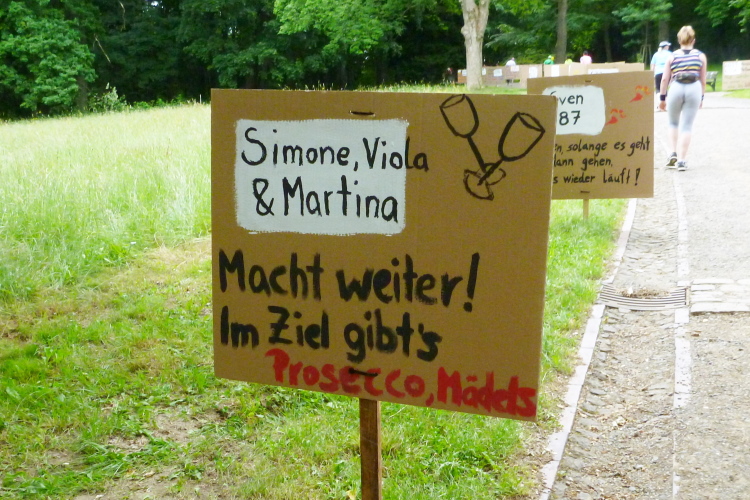 Simone, Viola
& Martina
Macht weiter!
Im Ziel gibt's
Prosecco, Mädels
Sven
87
solange es geht
dann gehen,
wieder läuft!